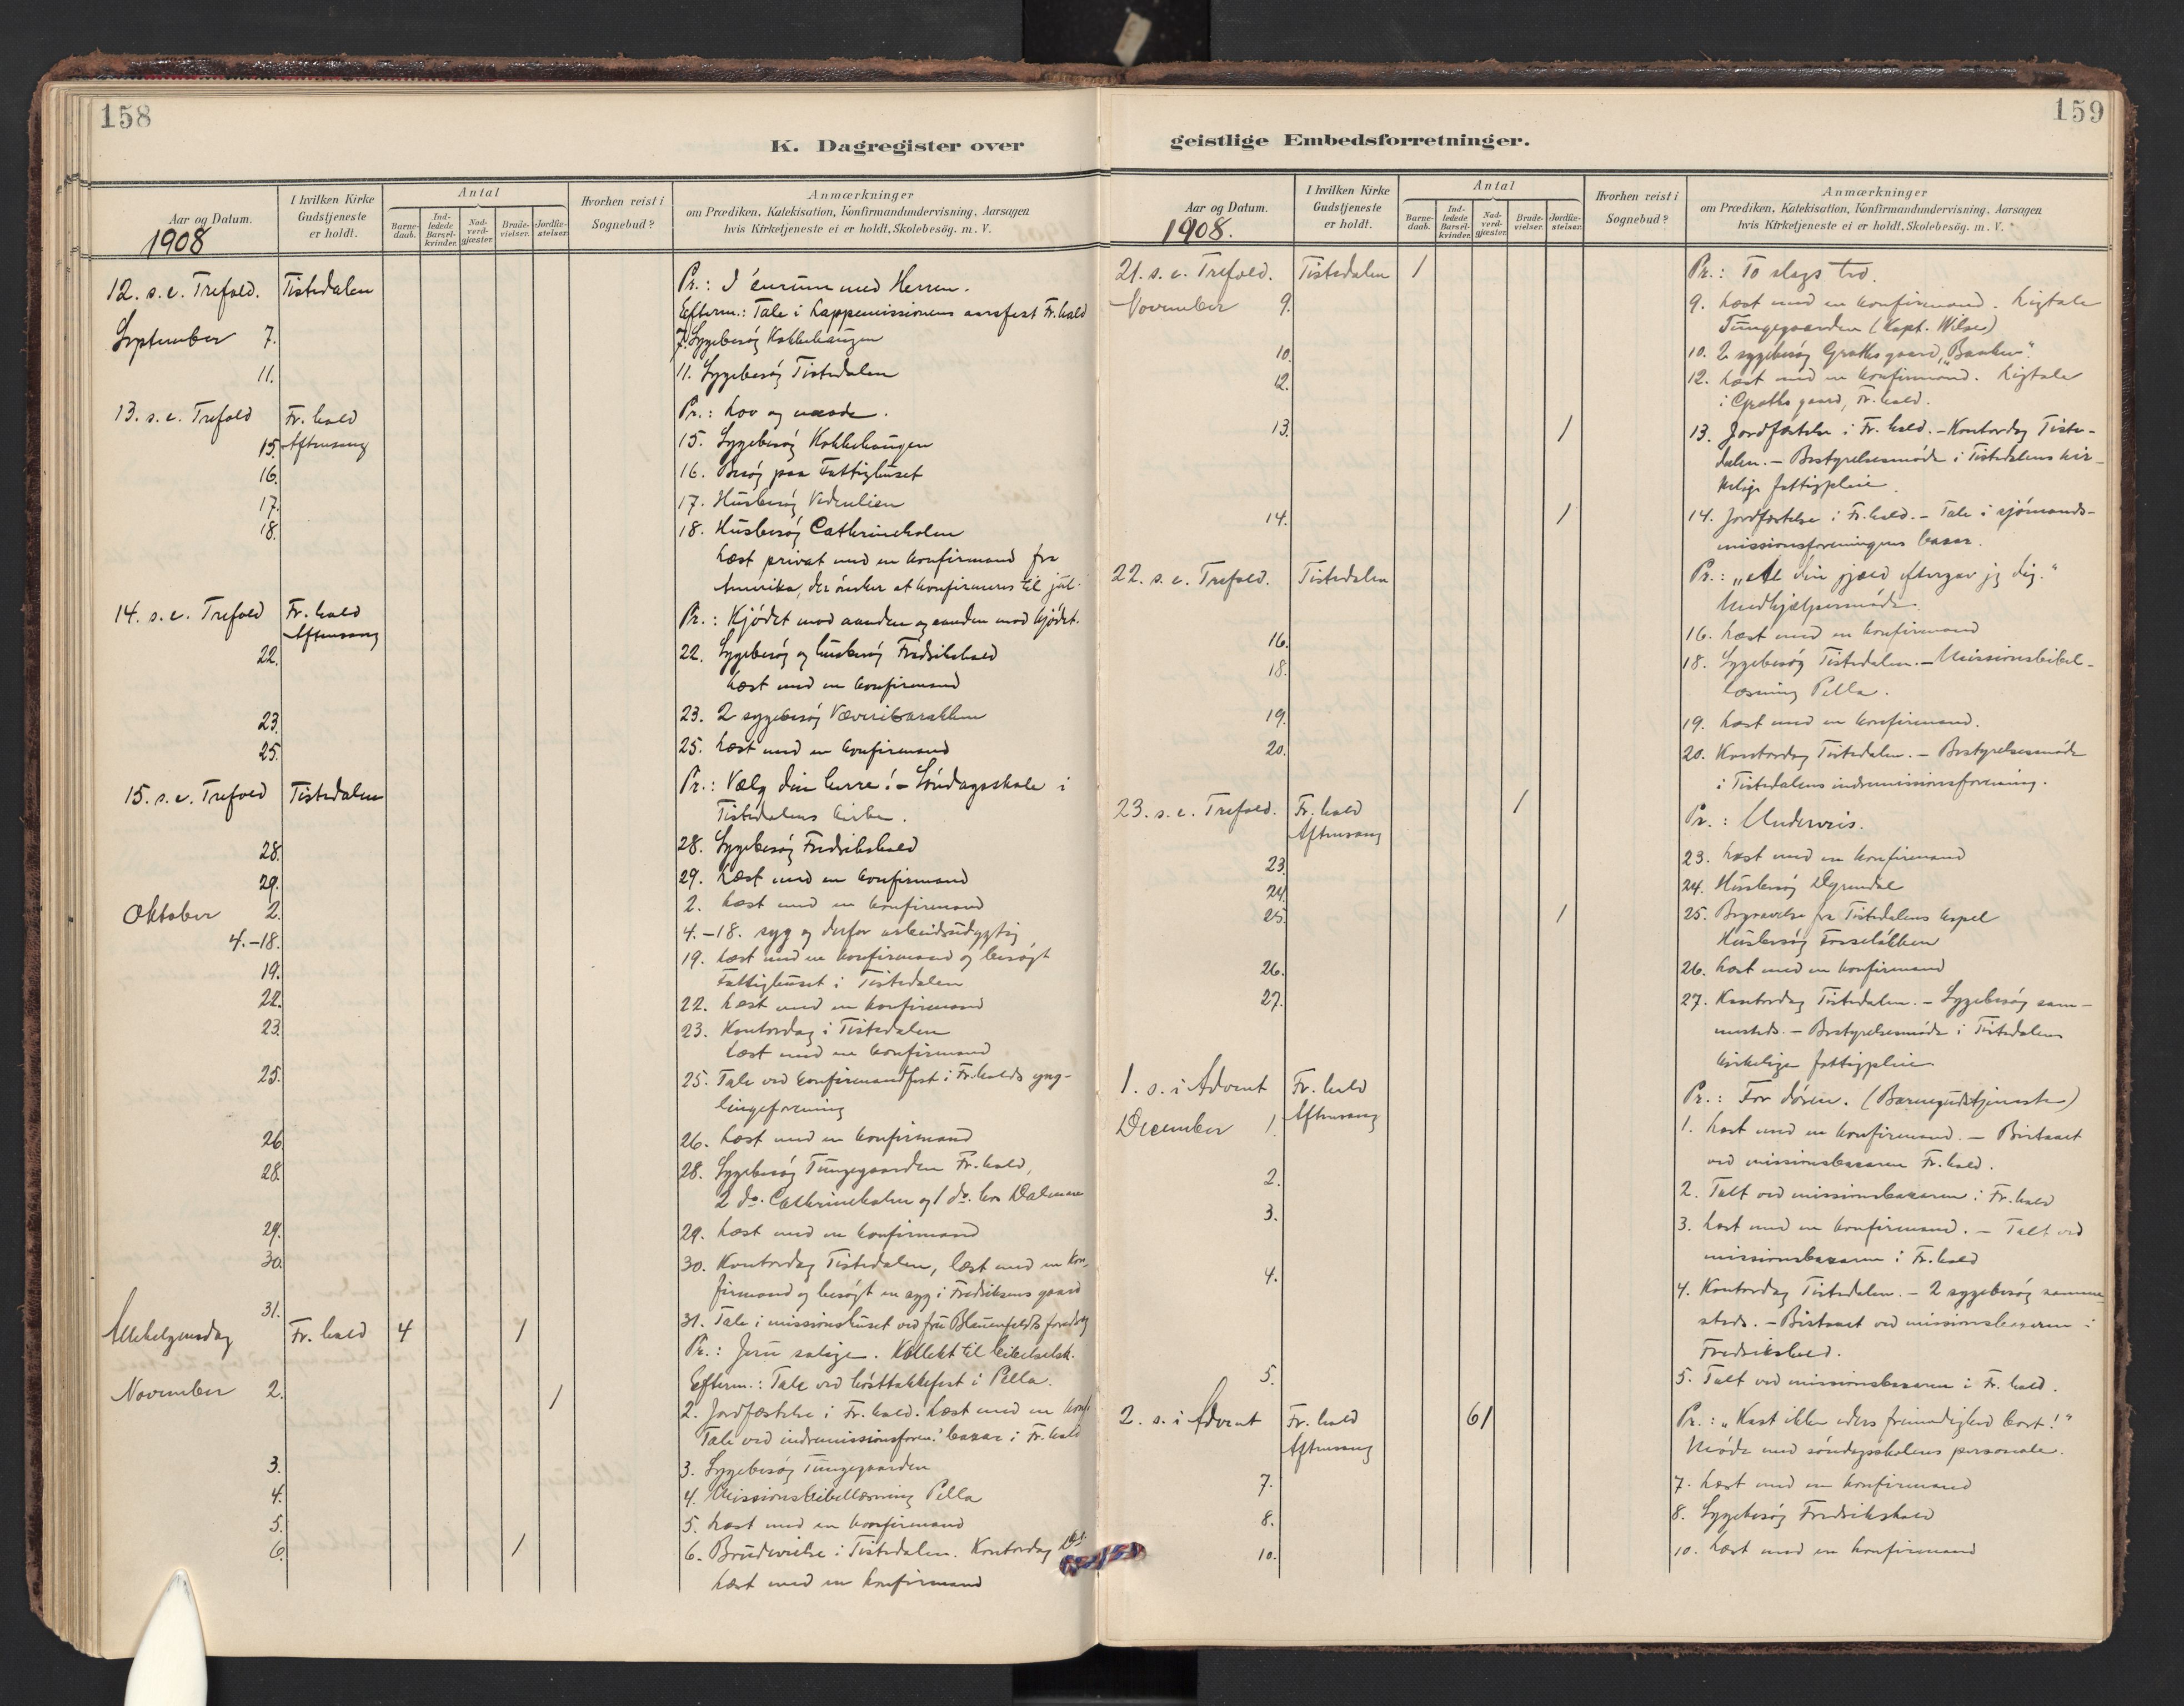 158
K. Dagregister over
Aar og Datum.
1908
I hvilken Kirke Gudstjeneste er holdt.
Antal
Barne-daab.
Ind-ledede Barsel-kvinder.
Nad-verd-gjæster.
Brude-vielser.
Jordfæ-stelser.
Hvorhen reist i Sognebud?
Anmærkninger
om Prædiken, Katekisation, Konfirmandundervisning, Aarsagen
hvis Kirketjeneste ei er holdt, Skolebesög. m. V.
12. s. e. Trefold. Tistedalen Pr.: I enrum med Herren.
Efterm.: Tale i Lappemissionens aarsfest Fr.hald
September 7. 7. Sygebesøg Kokkehaugen
11. 11. Sygebesøg Tistedalen
13. s. e. Trefold Fr. hald Pr.: Lov og naade.
15. Aftensang 15. Sygebesøg Kokkehaugen
16. 16. Besøg paa Fattighuset
17. 17. Husbesøg Vedenlien
18. 18. Husbesøg Cathrineholm
Læst privat med en konfirmand fra
Amerika, der ønsker at konfirmeres til jul.
14. s. e. Trefold Fr. hald Pr.: Kjødet mod aanden og aanden mod kjødet.
Aftensang
22. 22. Sygebesøg og husbesøg Fredrikshald
Læst med en konfirmand
23. 23. 2 sygebesøg Væveribarakken
25. 25. Læst med en konfirmand
15. s. e. Trefold Tistedalen Pr.: Vælg din herre! - Søndagsskole i
Tistedalens kirke.
28. 28. Sygebesøg Fredrikshald
29. 29. Læst med en konfirmand
Oktober 2. 2. Læst med en konfirmand
4.-18. 4.-18. syg og derfor arbeidsudygtig
19. 19. Læst med en konfirmand og besøgt
Fattighuset i Tistedalen
22. 22. Læst med en konfirmand
23. 23. Kontordag i Tistedalen
Læst med en konfirmand
25. 25. Tale ved konfirmandfest i Fr.halds yng-
lingeforening
26. 26. Læst med en konfirmand
28. 28. Sygebesøg Tungegaarden Fr. hald,
2 do. Cathrineholm og 1 do. hos
29. 29. Læst med en konfirmand
30. 30. Kontordag Tistedalen, læst med en kon-
firmand og besøgt en syg i Fredriksens gaard
31. 31. Tale i missionshuset ved fru Blauenfeldts foredrag
Allehelgensdag Fr. hald 4 1 Pr.: Jesu salige. Kollekt til bibelselsk.
Efterm.: Tale ved høsttakkefest i Pella.
November 2. 1 2. Jordfæstelse i Fr. hald. Læst med en konf.
Tale ved indremissionsforen.s bazar i Fr. hald
3. 3. Sygebesøg Tungegaarden
4. 4. Missionsbibellæsning Pella
5. 5. Læst med en konfirmand
6. 1 6. Brudevielse i Tistedalen. Kontordag
Læst med en konfirmand
159
geistlige Embedsforretninger.
Aar og Datum.
1908.
I hvilken Kirke Gudstjeneste er holdt.
Antal
Barne-daab.
Ind-ledede Barsel-kvinder.
Nad-verd-gjæster.
Brude-vielser.
Jordfæ-stelser.
Hvorhen reist i Sognebud?
Anmærkninger
om Prædiken, Katekisation, Konfirmandundervisning, Aarsagen
hvis Kirketjeneste ei er holdt, Skolebesög. m. V.
21. s. e. Trefold. Tistedalen 1 Pr.: To slags tro.
November 9. 9. Læst med en konfirmand. Ligtale
Tungegaarden (Kapt. Wilse)
10. 10. 2 sygebesøg gaard, "Banken".
12. 12. Læst med en konfirmand. Ligtale
i gaard, Fr. hald.
13. 1 13. Jordfæstelse i Fr. hald. - Kontordag Tiste-
dalen. - Bestyrelsesmøde i Tistedalens kir-
kelige fattigpleie.
14. 1 14. Jordfæstelse i Fr. hald. - Tale i sjømands-
missionsforeningens bazar.
22. s. e. Trefold. Tistedalen Pr.: "Al din gjæld eftergav jeg dig."
Medhjælpermøde.
16. 16. Læst med en konfirmand
18. 18. Sygebesøg Tistedalen. - Missionsbibel-
læsning Pella.
19. 19. Læst med en konfirmand.
20. 20. Kontordag Tistedalen. - Bestyrelsesmøde
i Tistedalens indremissionsforening.
23. s. e. Trefold. Fr. hald 1 Pr.: Underveis.
Aftensang
23. 23. Læst med en konfirmand
24. 24. Husbesøg
25. 1 25. Begravelse fra Tistedalens kapel
Husbesøg Fosseløkken
26. 26. Læst med en konfirmand
27. 27. Kontordag Tistedalen. - Sygebesøg sam-
mesteds. - Bestyrelsesmøde i Tistedalens
kirkelige fattigpleie
1. s. i Advent Fr. hald Pr.: For døren. (Barnegudstjeneste)
December 1. Aftensang 1. Læst med en konfirmand. - Bistaaet
ved missionsbazaren Fr. hald.
2. 2. Talt ved missionsbazaren i Fr. hald
3. 3. Læst med en konfirmand. - Talt ved
missionsbazaren i Fr. hald
4. 4. Kontordag Tistedalen. - 2 sygebesøg samme-
steds. - Bistaaet ved missionsbazaren i
Fredrikshald.
5. 5. Talt ved missionsbazaren i Fr. hald.
2. s. i Advent Fr. hald 61 Pr.: "Kast ikke eders frimodighed bort!"
Aftensang Møde med søndagsskolens personale.
7. 7. Læst med en konfirmand
8. 8. Sygebesøg Fredrikshald
10. 10. Læst med en konfirmand